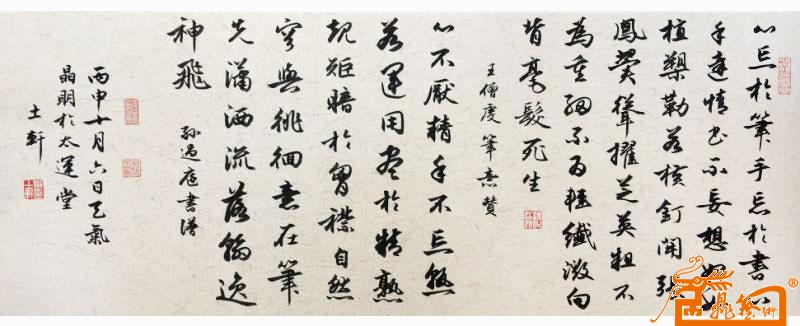 心忘於筆手忘於書心
手達情書不妄想努如
植槊勒若横釘開張
鳳翼聳擢芝英粗不
為重細不為輕纖微向
背毫髮死生
王僧虔筆意贊
心不厭精手不忘熟
若運用盡於精熟
規矩暗於胷襟自然
容與徘徊意在筆
先瀟洒流落翰逸
神飛
孫過庭書譜
丙申十月六日天氣
晶明於太運堂
士軒